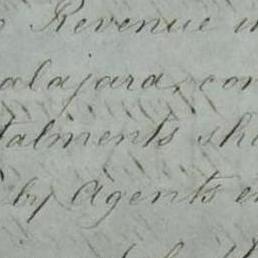 Revenue
alajara, con
talments sh
by Agents e